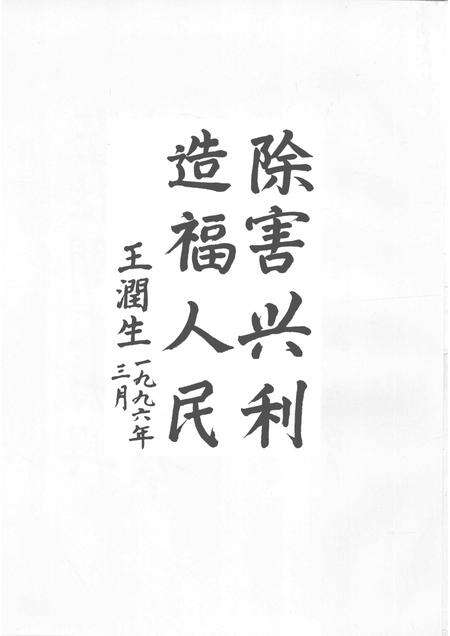 除害兴利
造福人民
王潤生
一九九六年
三月